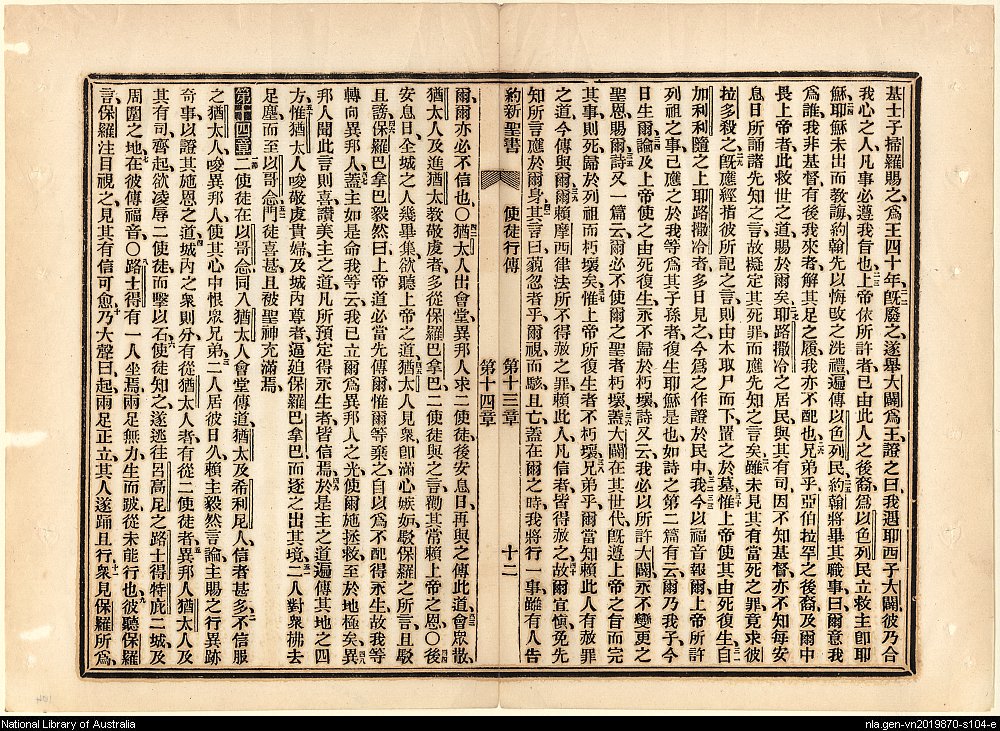 基士子掃羅賜之爲王四十年旣廢之遂舉大闢爲王證之曰我遇耶西子大闢彼乃合
我心之人凡事必遵我旨也上帝依所許者已由此人之後裔爲以色列民立救主卽耶
穌耶穌未出而教誨約翰先以悔改之洗禮遍傳以色列民約翰將畢其職事曰爾意我
爲誰我非基督有後我來者解其足之履我亦不配也兄弟乎亞伯拉罕之後裔及爾中
畏上帝者此救世之道賜於爾矣耶路撒冷之居民與其有司因不知基督亦不知每安
息日所誦諸先知之言故擬定其死罪而應先知之言矣雖未見其有當死之罪竟求彼
拉多殺之旣應經指彼所記之言則由木取尸而下置之於墓惟上帝使其由死復生自
加利利隨之上耶路撒冷者多日見之今爲之作證於民中我今以福音報爾上帝所許
列祖之事已應之於我等爲其子孫者復生耶穌是也如詩之第二篇有云爾乃我子今
日生爾論及上帝使之由死復生永不歸於朽壞詩又云我必以所許大闢永不變更之
聖恩賜爾詩又一篇云爾必不使爾之聖者朽壞蓋大闢在其世代旣遵上帝之旨而完
其事則死歸於列祖而朽壞矣惟上帝所復生者不朽壞兄弟乎爾當知賴此人有赦罪
之道今傳與爾爾賴摩西律法所不得赦之罪賴此人凡信者皆得赦之故爾宜愼免先
知所言應於爾身其言曰藐忽者乎爾視而駭且亡蓋在爾之時我將行一事雖有人告
約新聖書 使徒行傳 第十三章 十二
第十四章
爾爾亦必不信也○猶太人出會堂異邦人求二使徒後安息日再與之傳此道會衆散
猶太人及進猶太教敬虔者多從保羅巴拿巴二使徒與之言勸其常賴上帝之恩○後
安息日全城之人幾畢集欲聽上帝之道猶太人見衆卽滿心嫉妬駁保羅之所言且駁
且謗保羅巴拿巴毅然曰上帝道必當先傳爾惟爾等棄之自以爲不配得永生故我等
轉向異邦人蓋主如是命我等云我已立爾爲異邦人之光使爾施拯救至於地極矣異
邦人聞此言則喜讚美主之道凡所預定得永生者皆信焉於是主之道遍傳其地之四
方惟猶太人唆敬虔貴婦及城內尊者逼迫保羅巴拿巴而逐之出其境二人對衆拂去
足塵而至以哥念門徒喜甚且被聖神充滿焉
第十四章二使徒在以哥念同入猶太人會堂傳道猶太及希利尼人信者甚多不信服
之猶太人唆異邦人使其心中恨衆兄弟二人居彼日久賴主毅然言論主賜之行異跡
奇事以證其施恩之道城內之衆則分有從猶太人者有從二使徒者異邦人猶太人及
其有司齊起欲凌辱二使徒而擊以石使徒知之遂逃往呂高尼之路士得特庇二城及
周圍之地在彼傳福音○路士得有一人坐焉兩足無力生而跛從未能行也彼聽保羅
言保羅注目視之見其有信可愈乃大聲曰起兩足正立其人遂踊且行衆見保羅所爲
National Library of Australia
nla.gen-vn2019870-s104-e